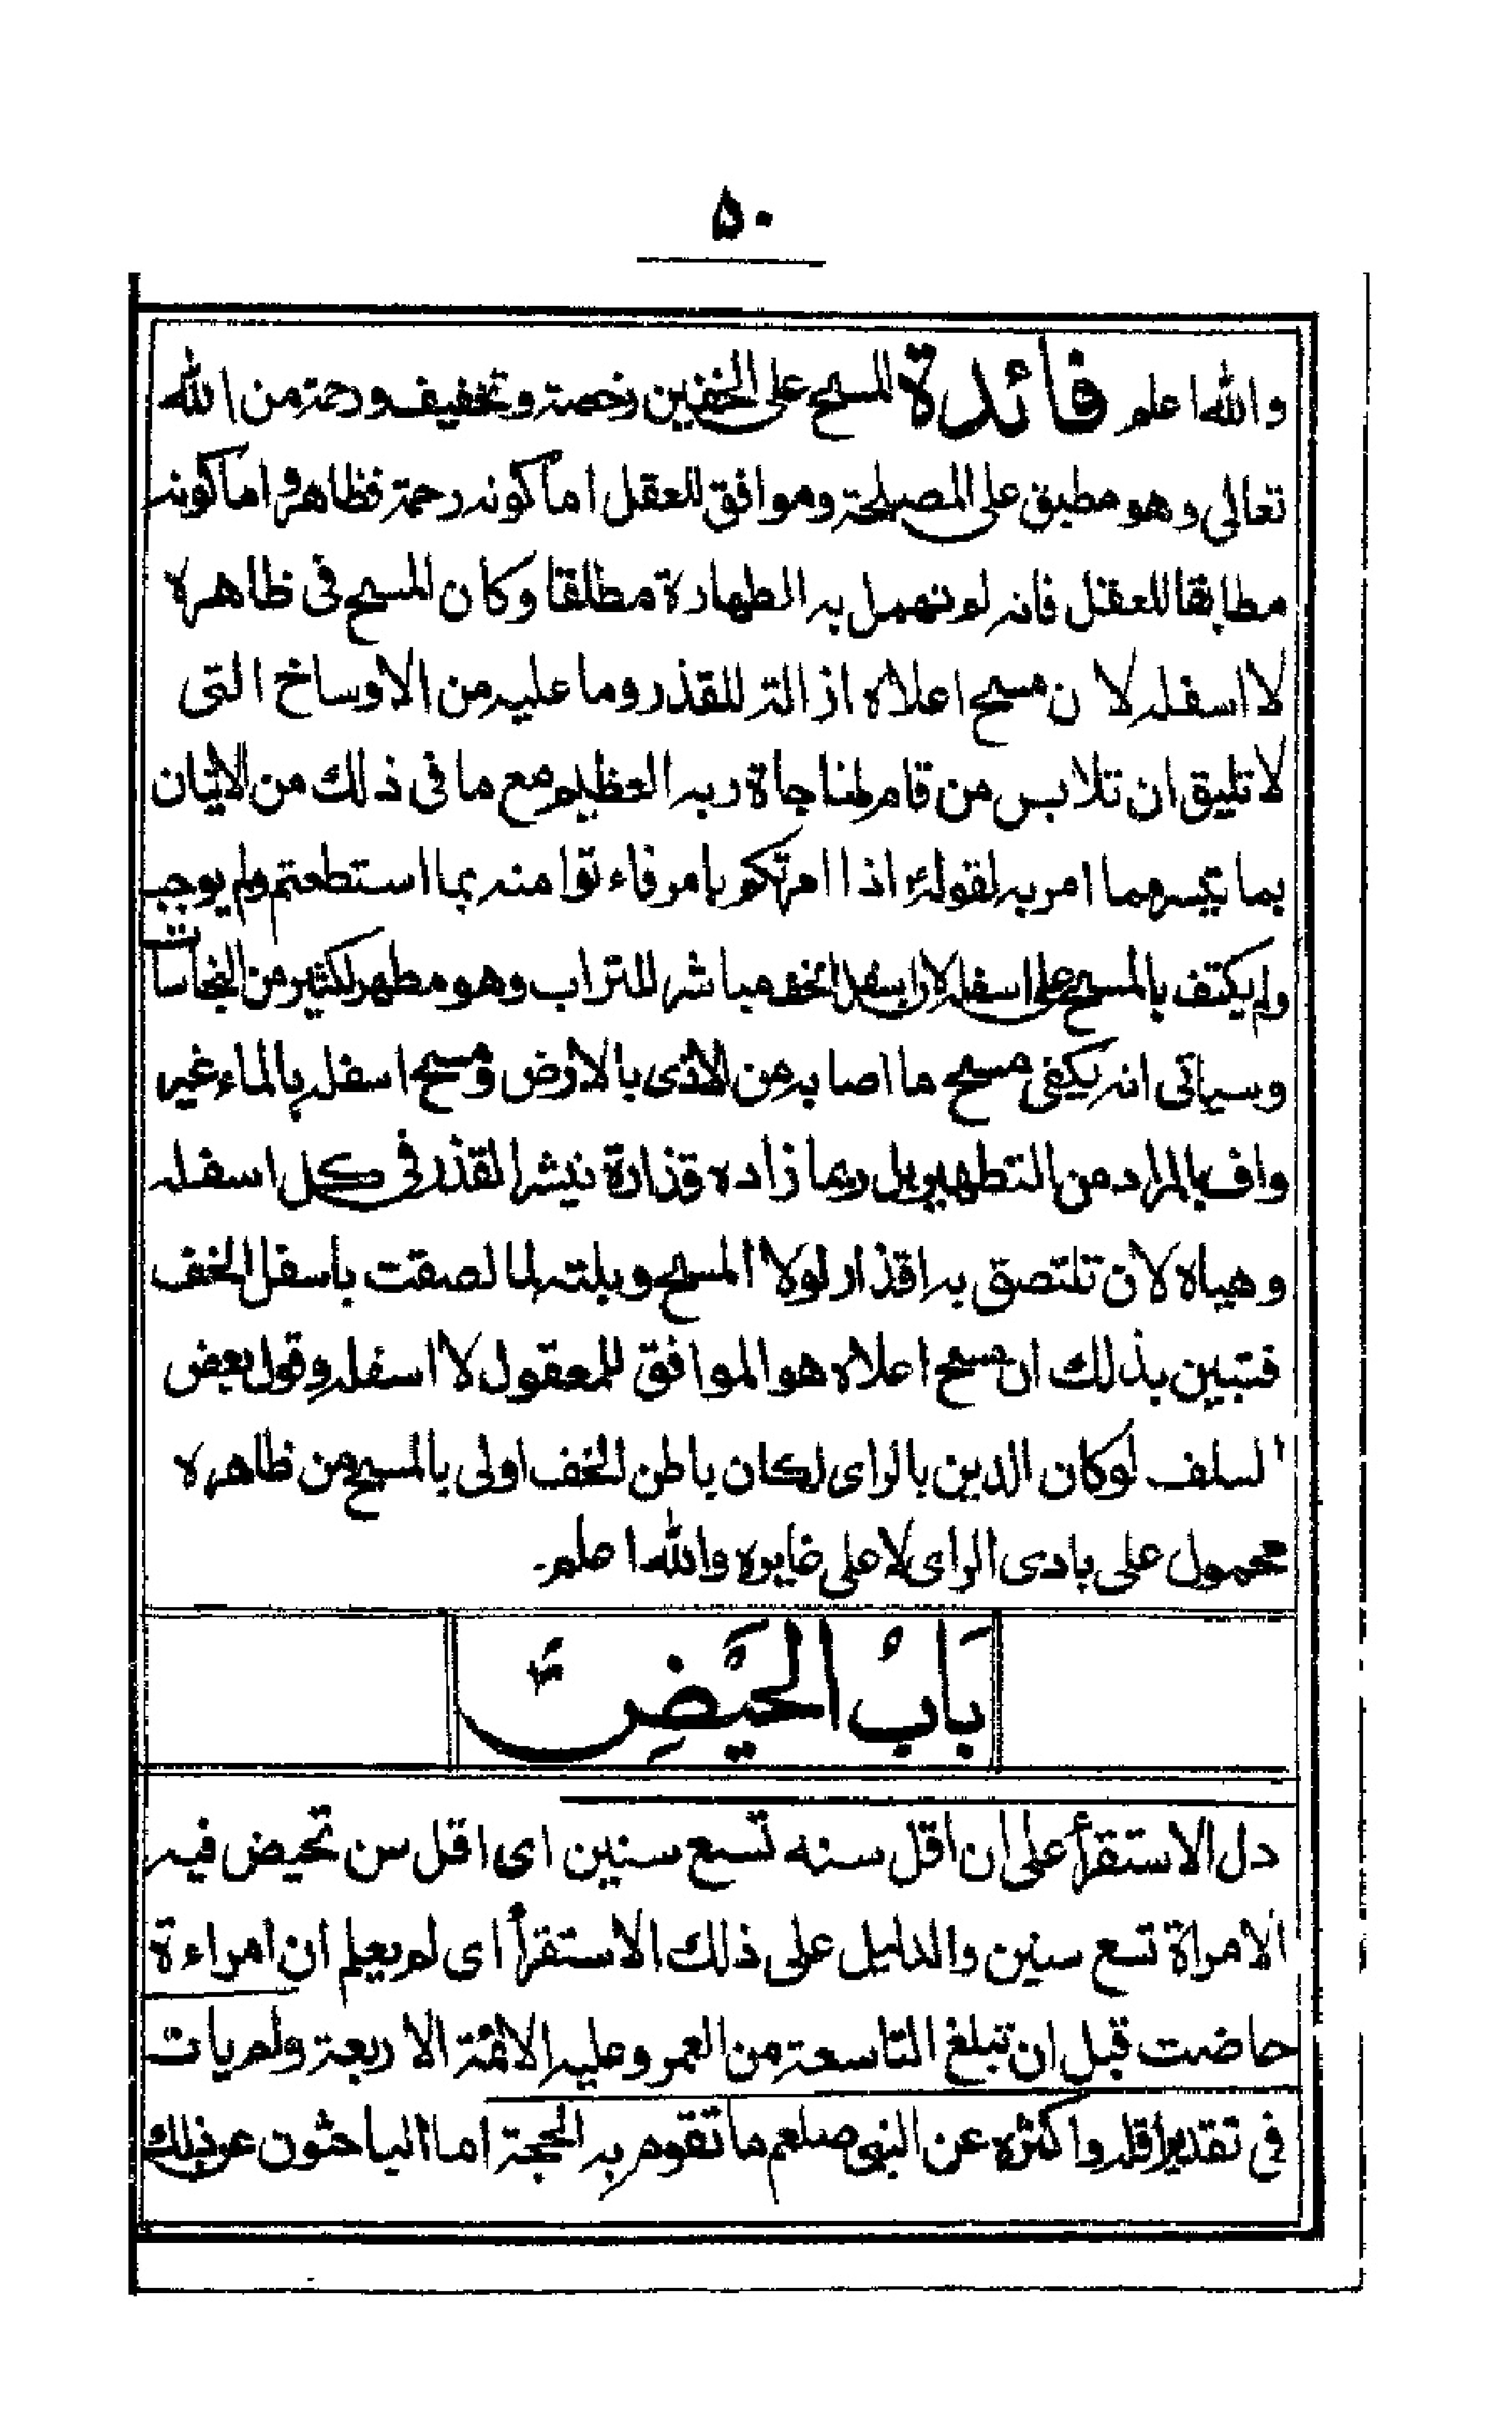 ۵۰
والله اعلم فائدة المسح على الخفين رخصة وتخفيف ورحمة من الله
تعالى وهو مطبق على المصلحة وموافق للعقل اما كونه رحمة فظاهر واما كونه
مطابقا للعقل فانه لم تهمل به الطهارة مطلقا وكان المسح فى ظاهره
لا اسفله لان مسح اعلاه ازالة للقذر وما عليه من الاوساخ التى
لا تليق ان تلابس من قام لمناجاة ربه العظيم مع ما فى ذلك من الاتيان
بما تيسر مما امر به لقوله اذا امرتكم بامر فاءتوا منه بما استطعتم ولم يوجب
ولم يكتف بالمسح على اسفله لان اسفل الخف مباشر للتراب وهو مطهر لكثير من النجاسات
وسياتى انه يكفى مسح ما اصابه من الاذى بالارض ومسح اسفله بالماء غير
واف بالمراد من التطهير بل ربما زاده قذارة نيشر القذر فى كل اسفله
وهياه لان تلتصق به اقذار لولا المسح وبلته لما لصقت باسفل الخف
فتبين بذلك ان مسح اعلاه هو الموافق للمعقول لا اسفله وقول بعض
السلف لو كان الدين بالراى لكان باطن الخف اولى بالمسح من ظاهره
محمول على بادى الراى لا على غايره والله اعلم۔
بَابُ الحَيَضِ
دل الاستقرأ على ان اقل سنه تسع سنين اى اقل سن تحيض فيه
الامراة تسع سنين والدليل على ذلك الاستقرأ اى لم يعلم ان امراءة
حاضت قبل ان تبلغ التاسعة من العمر وعليه الائمة الاربعة ولم يات
فى تقدير اقله واكثره عن النبى صلعم ما تقوم به الحجة اما الباحثون عن ذلك